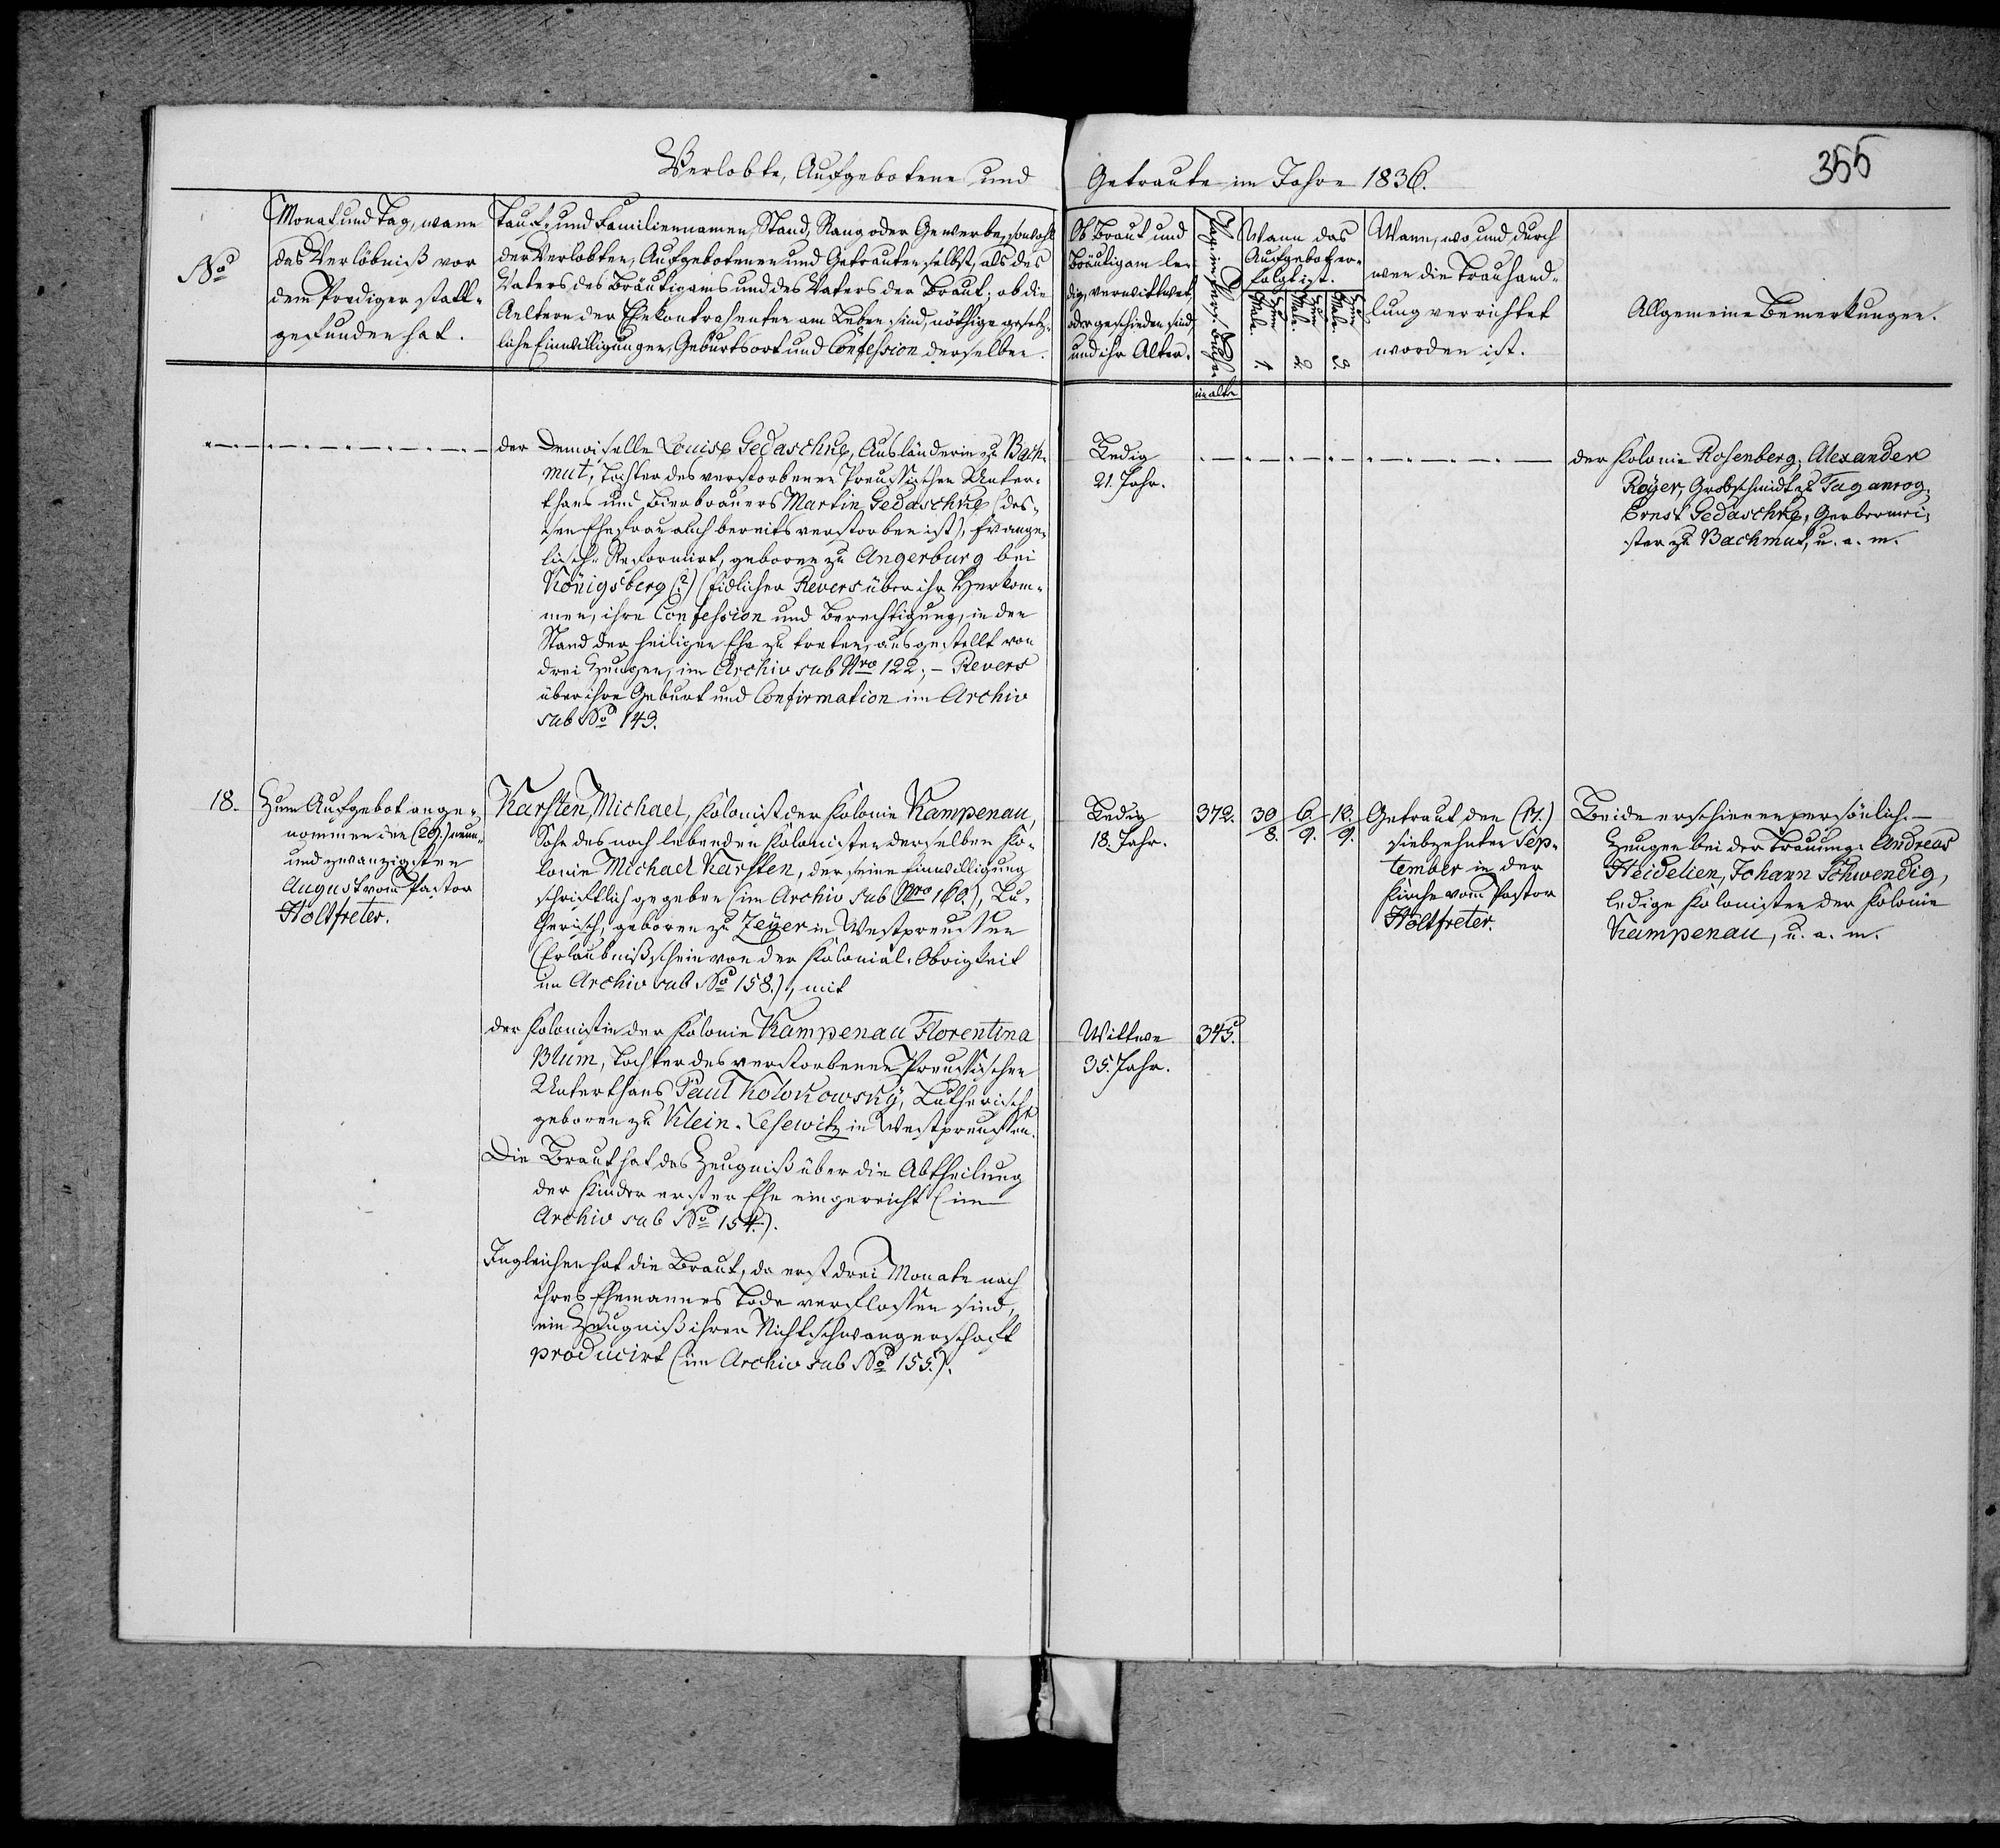 Verlobte, Aufgebotene und Getraute im Jahre 1836.
355
No
Monat und Tag, wann
das Verlöbniß vor
dem Prediger statt-
gefunden hat.
Tauf- und Familiennamen, Stand, Rang oder Gewerbe, sowohl
der Verlobten, Aufgebotenen und Getrauten selbst, als des
Vaters des Bräutigams und des Vaters der Braut; ob die
Aeltern der Ehekontrahenten am Leben sind, nöthige gesetz-
liche Einwilligungen, Geburtsort und Confession derselben.
Ob Braut und
Bräutigam le-
dig, verwittwet
oder geschieden sind
und ihr Alter.
Pag. im Pers. Buche
Wann das
Aufgebot er-
folgt ist.
Zum Male. 1.
Zum Male. 2.
Zum Male. 3.
Wann, wo und durch
wen die Trauhand-
lung verrichtet
worden ist.
Allgemeine Bemerkungen.
im alten
der Demoiselle Louise Gedaschke, Ausländerin zu Bach-
mut, Tochter des verstorbenen Preussischen Unter-
thans und Bierbrauers Martin Gedaschke (des-
sen Ehefrau auch bereits verstorben ist), Evange-
lisch-Reformirt, geboren zu Angerburg bei
Königsberg (?) (Eidlicher Revers über ihr Herkom-
men, ihre Confession und Berechtigung, in den
Stand der heiligen Ehe zu treten, ausgestellt von
drei Zeugen, im Archiv sub Nro 122; – Revers
über ihre Geburt und Confirmation im Archiv
sub No 143.
Ledig
21. Jahr.
der Kolonie Rosenberg; Alexander
Reyer, Grobschmidt zu Taganrog;
Ernst Gedaschke, Gerbermei-
ster zu Bachmut, u. a. m.
18.
Zum Aufgebot ange-
nommen den (29.) neun-
und zwanzigsten
August vom Pastor
Holtfreter.
Karsten, Michael, Kolonist der Kolonie Kampenau,
Sohn des noch lebenden Kolonisten derselben Ko-
lonie Michael Karsten, der seine Einwilligung
schriftlich gegeben (im Archiv sub Nro 160.), Lu-
therisch, geboren zu Zeyer in Westpreussen
(Erlaubnißschein von der Kolonial-Obrigkeit
im Archiv sub No 158.), mit
der Kolonistin der Kolonie Kampenau Florentina
Blum, Tochter des verstorbenen Preussischen
Unterthans Paul Kolokowsky, Lutherisch,
geboren zu Klein-Lesewitz in Westpreussen.
Die Braut hat das Zeugniß über die Abtheilung
der Kinder erster Ehe eingereicht (im
Archiv sub No 154.).
Ingleichen hat die Braut, da erst drei Monate nach
ihres Ehemannes Tode verflossen sind,
ein Zeugniß ihrer Nichtschwangerschaft
producirt (im Archiv sub No 155.).
Ledig
18. Jahr.
372.
30/8.
6/9.
13/9.
Getraut den (17.)
siebzehnten Sep-
tember in der
Kirche vom Pastor
Holtfreter.
Beide erschienen persönlich. –
Zeugen bei der Trauung: Andreas
Heidelien, Johann Schwendig,
ledige Kolonisten der Kolonie
Kampenau, u. a. m.
Wittwe
35. Jahr.
345.